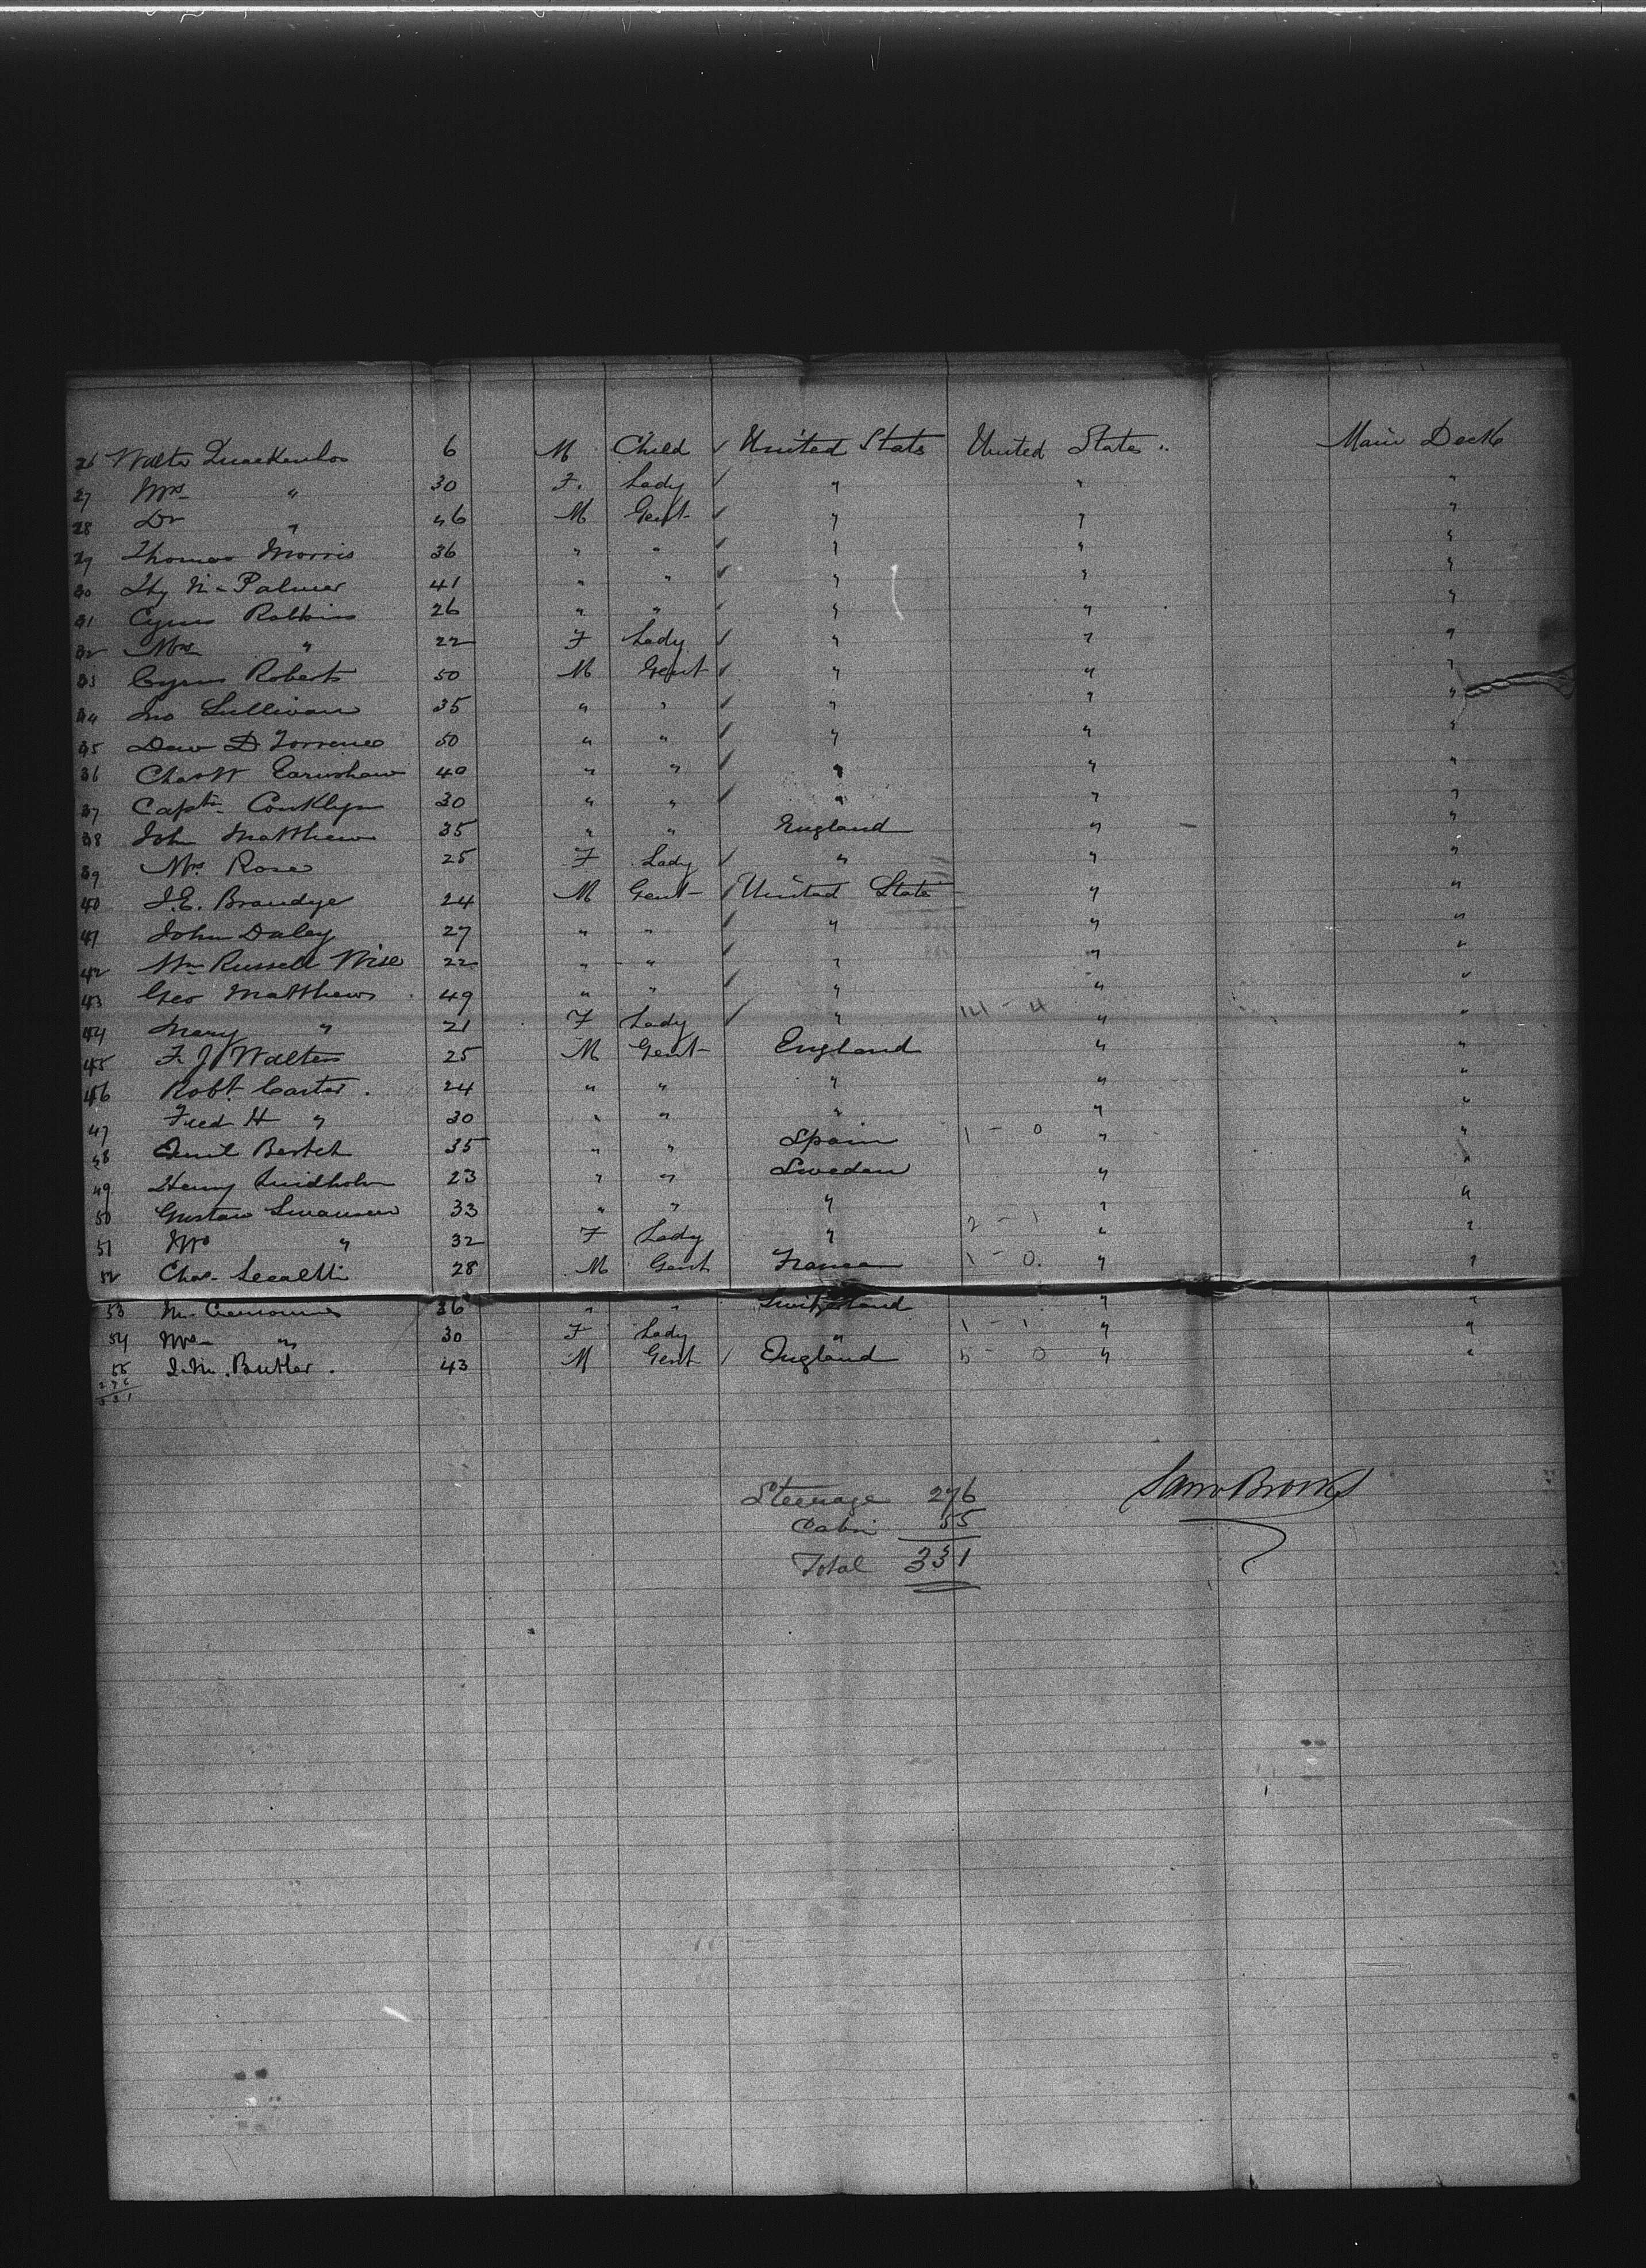 26 Walter Quackenbos 6 M Child ✓ United States United States " Main Deck
27 Mrs " 30 F. Lady ✓ " " "
28 Dr " 46 M Gent ✓ " " "
29 Thomas Morris 36 " " ✓ " " "
30 Hy M. Palmer 41 " " ✓ " " "
31 Cyrus Robbins 26 " " ✓ " " "
32 Mrs " 22 F Lady ✓ " " "
33 Cyrus Roberts 50 M Gent ✓ " " "
34 Jno Sullivan 35 " " ✓ " " "
35 D Torrence 50 " " ✓ " " "
36 Chas W Earnshaw 40 " " ✓ " " "
37 Captn Conklyn 30 " " ✓ " " "
38 John Matthews 35 " " England " "
39 Mrs Rose 25 F Lady ✓ " " "
40 J.E. Brandye 24 M Gent ✓ United State " "
41 John Daley 27 " " ✓ " " "
42 Wm Russell Wise 22 " " ✓ " " "
43 Geo Matthews 49 " " ✓ " " "
44 Mary " 21 F Lady ✓ " 14 - 4 " "
45 F. J. Walters 25 M Gent England " "
46 Robt. Carter . 24 " " " " "
47 Fred H " 30 " " " " "
48 Emil 35 " " Spain 1 - 0 " "
49 Henry Lindholm 23 " " Sweden " "
50 Gustav Swanson 33 " " " " "
51 Mrs " 32 F Lady " 2 - 1 " "
52 Chas. 28 M Gent France 1 - 0. " "
53 M. 36 " " Switzerland " "
54 Mrs " 30 F Lady " 1 - 1 " "
55 J. M. Butler . 43 M Gent ✓ England 5 - 0 " "
276
331
Steerage 276
Cabin 55
Total 331